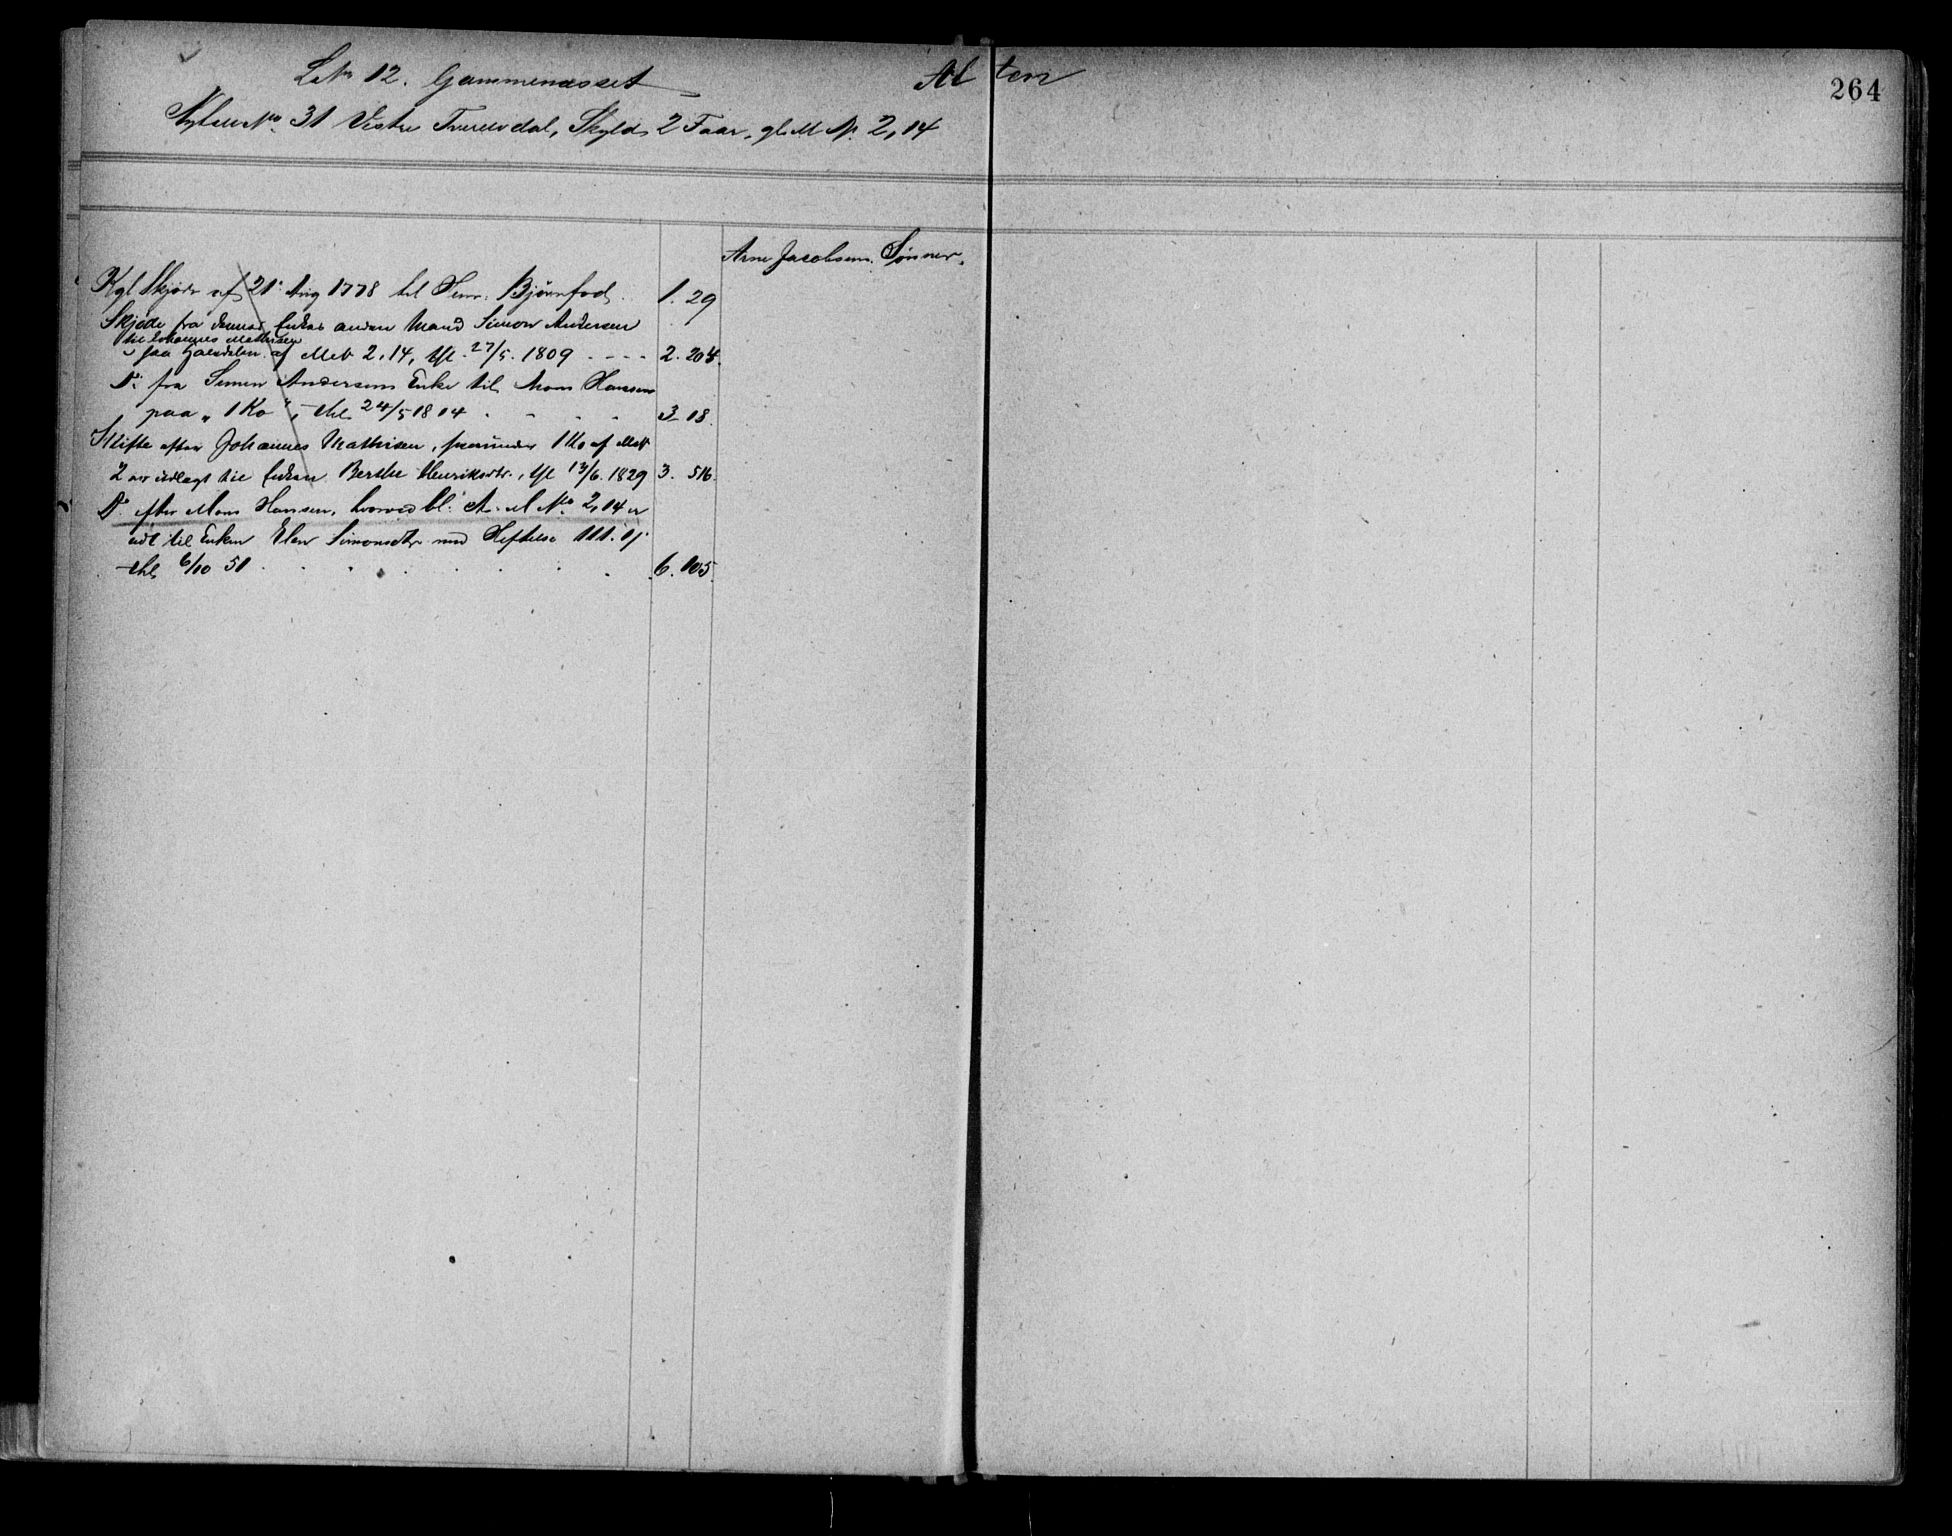 LNo 12. Gammenæsset
Alten
264
No 31 Vestre Tverelvdal, Skyld 2 Faar, gl. M No. 2,14
Arne Jacobsens Sønner.
Kgl Skjøde af 21 Aug 1778 til Henr. Bjørnfod. 1. 29
Skjøde fra dennes Enkes anden Mand Simon Andersen
til Johannes Mathisen
paa Halvdelen af MNo 2,14, thl. 27/5. 1809 - - - - 2. 204.
Do fra Simon Andersens Enke til Mons Hansen
paa „1 Ko“, thl 24/5 1814 3. 18.
Skifte efter Johannes Mathisen, hvorunder 1 Ko af MNo
2 er udlagt til Enken Berthe Henriksdtr., thl 13/6. 1829 3. 516.
Do efter Mons Hansen, hvorved bl. A. M No. 2,14 er
udl til Enken Elen Simonsdtr med Heftelse 111.
thl 6/10 51 6. 105.